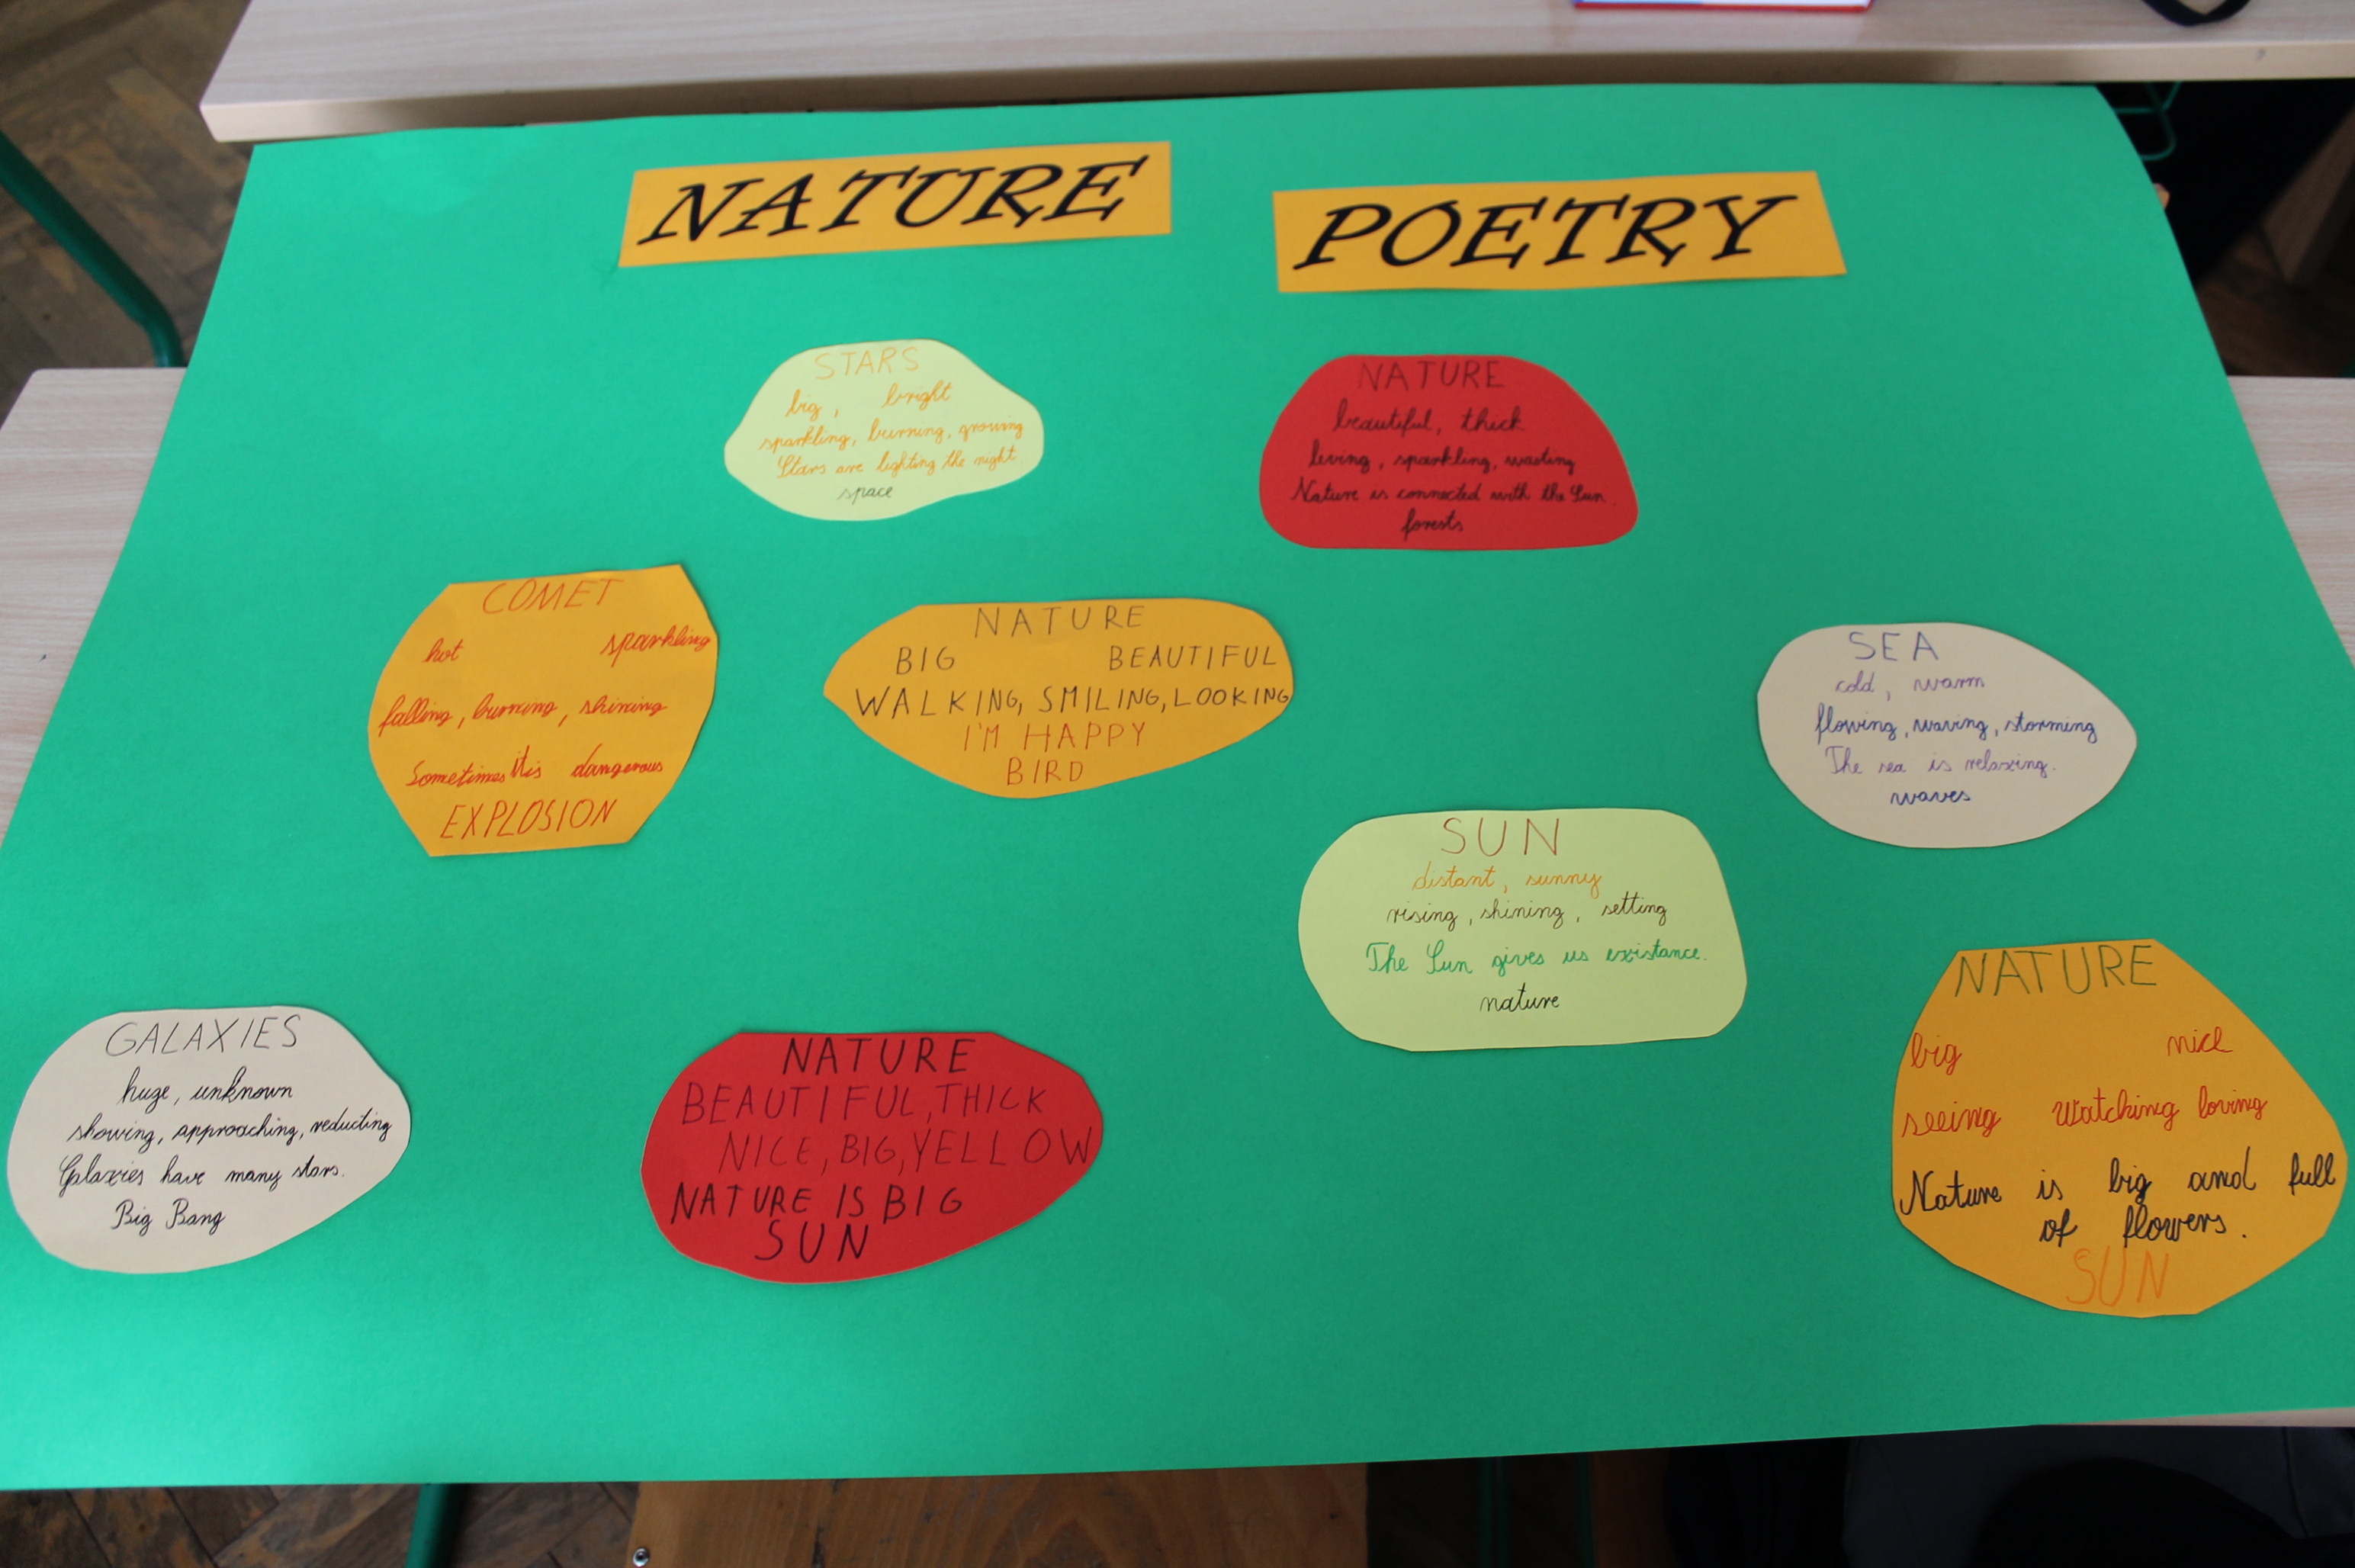 NATURE POETRY
STARS
big, bright
sparkling, burning, growing
Stars are lighting the night
space
NATURE
beautiful, thick
living, sparkling, wasting
Nature is connected with the Sun.
forests
COMET
hot sparkling
falling, burning, shining
Sometimes it is dangerous
EXPLOSION
NATURE
BIG BEAUTIFUL
WALKING, SMILING, LOOKING
I'M HAPPY
BIRD
SEA
cold, warm
flowing, waving, storming
The sea is relaxing.
waves
SUN
distant, sunny
rising, shining, setting
The Sun gives us existance.
nature
GALAXIES
huge, unknown
showing, approaching, reducting
Galaxies have many stars.
Big Bang
NATURE
BEAUTIFUL, THICK
NICE, BIG, YELLOW
NATURE IS BIG
SUN
NATURE
big nice
seeing watching loving
Nature is big and full
of flowers.
SUN